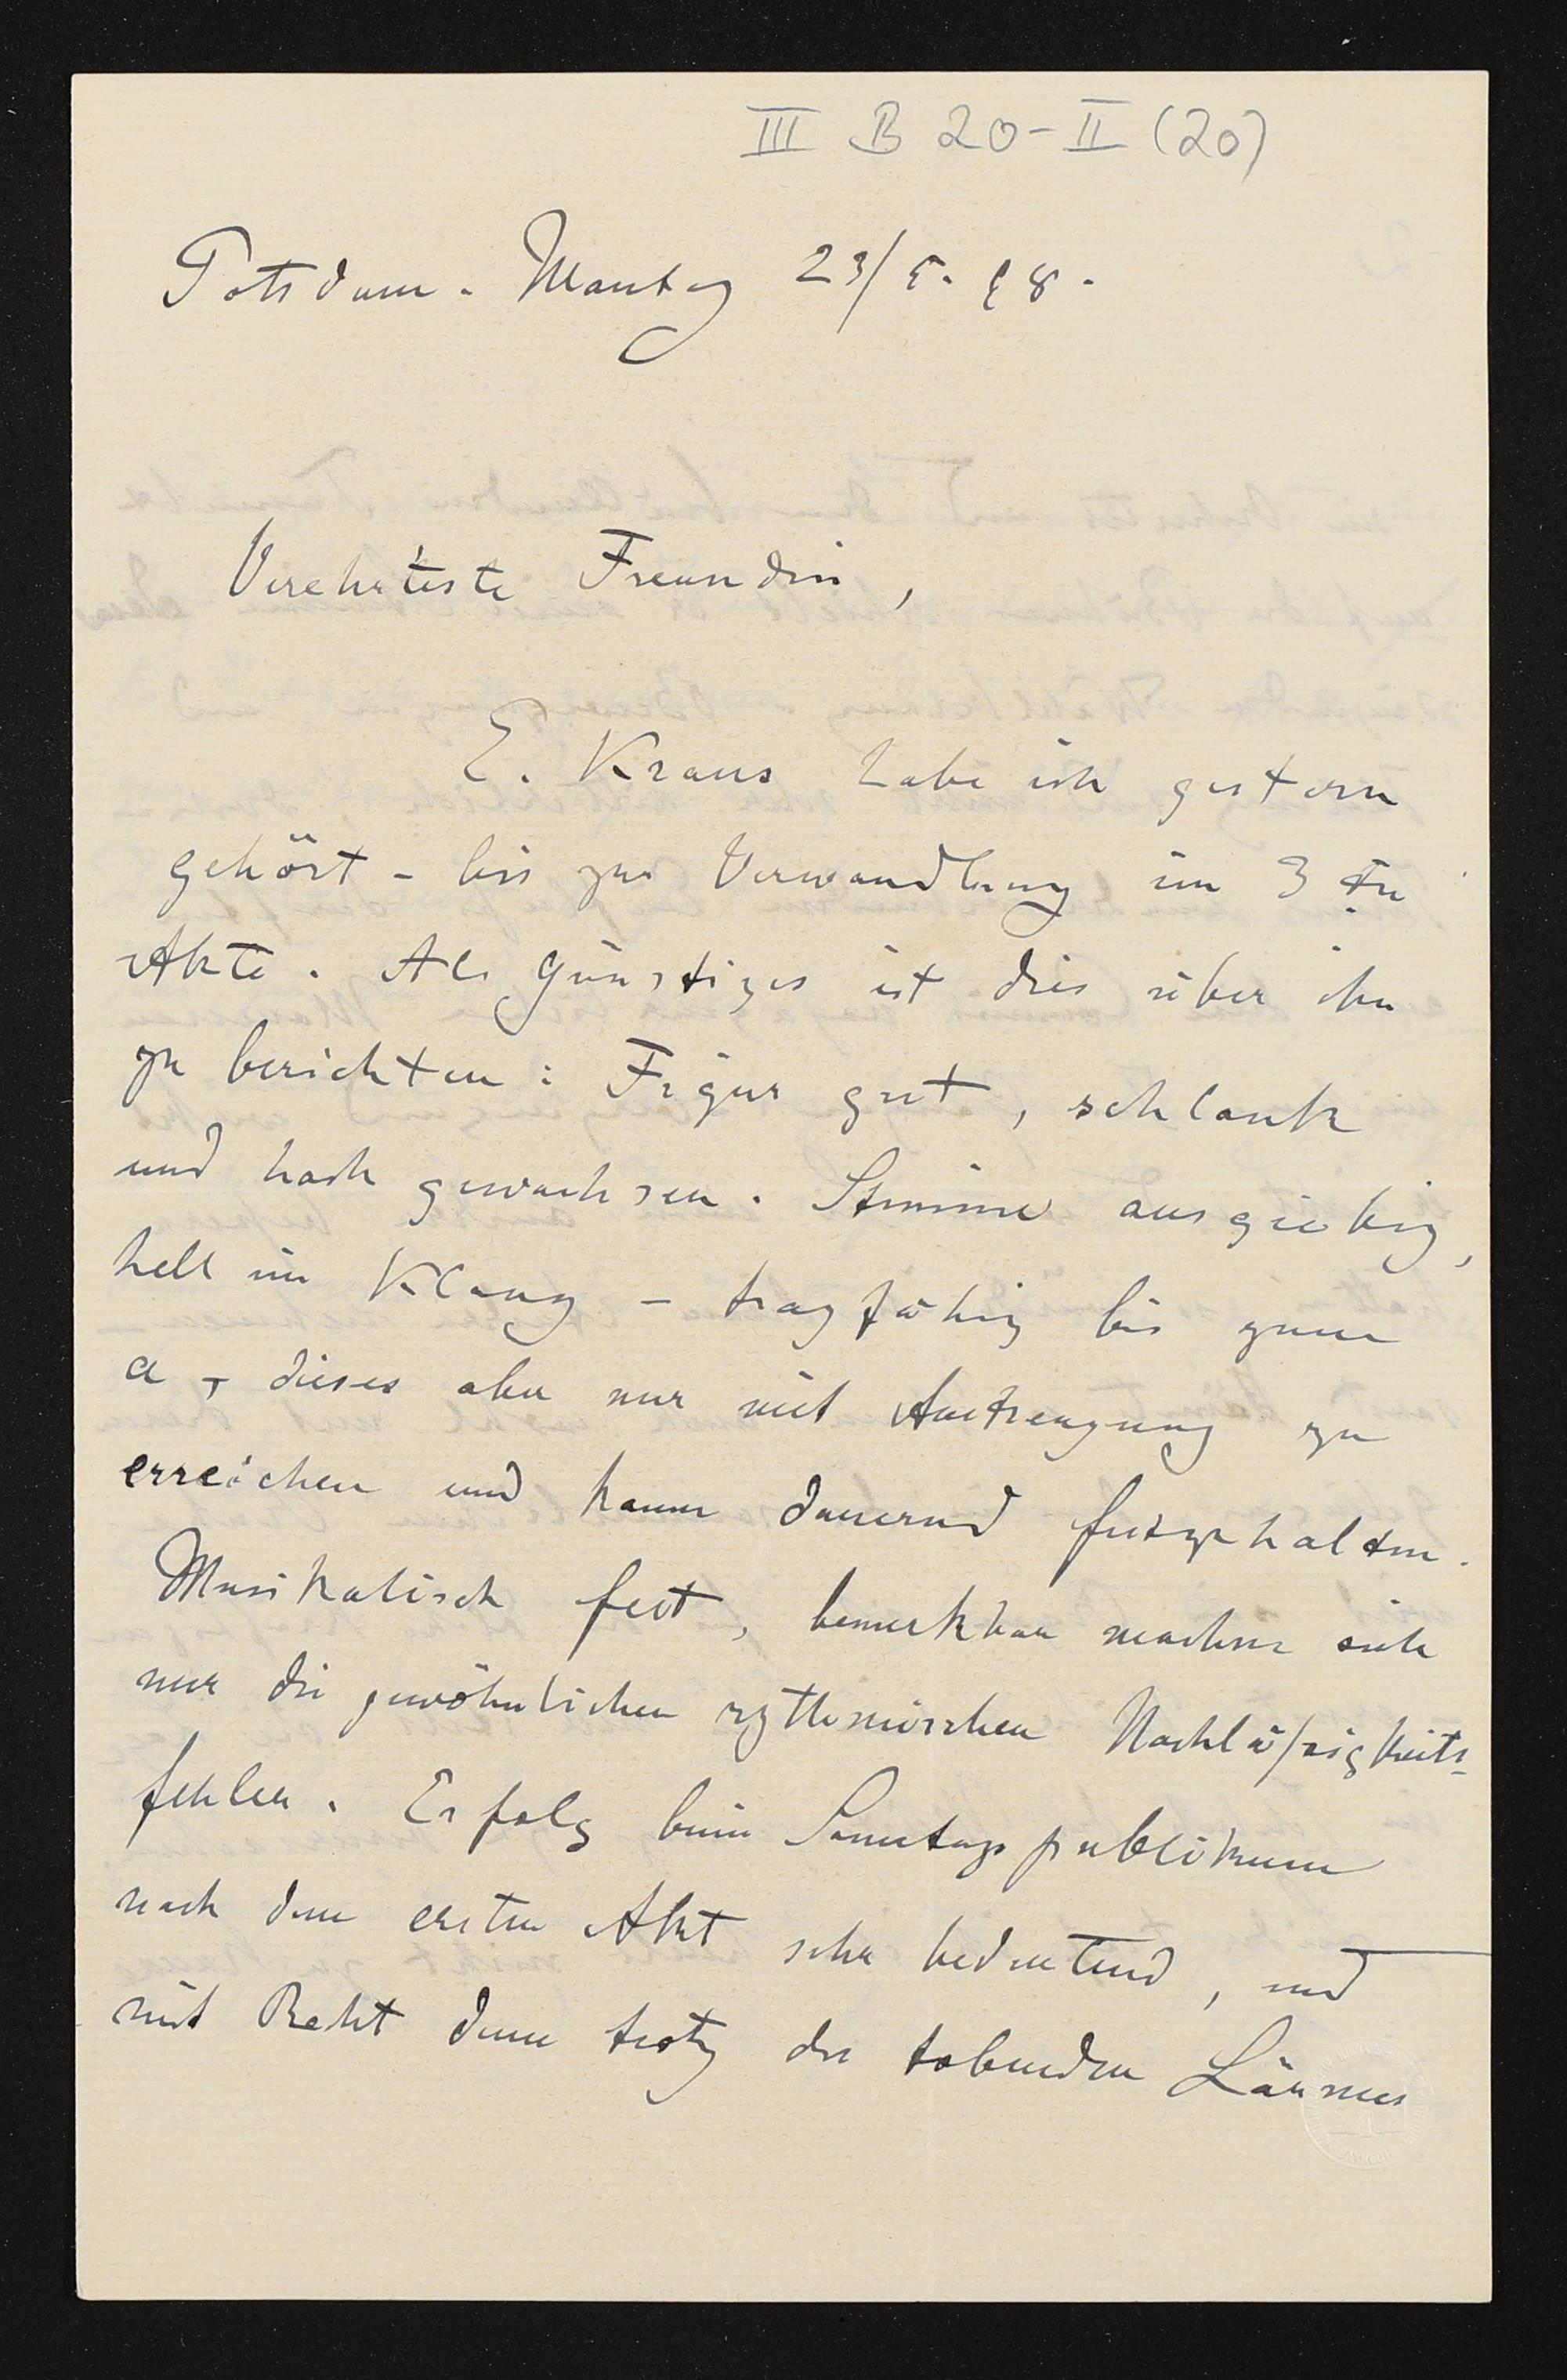 III B 20-II (20)
Potsdam. Montag 23/5. 98.
Verehrteste Freundin,
E. Kraus habe ich gestern
gehört - bis zur Verwandlung im 3 ten
Akte. Als Günstiges ist dies über ihn
zu berichten: Figur gut, schlank
und hoch gewachsen. Stimme ausgiebig,
hell im Klang - tragfähig bis zum
a, dieses aber nur mit Anstrengung zu
erreichen und kaum dauernd festzuhalten.
Musikalisch fest, bemerkbar machen sich
nur die gewöhnlichen rythmischen Nachläßigkeits-
fehler. Erfolg beim Sonntagspublikum
nach dem ersten Akt sehr bedeutend, und
mit Recht denn trotz des tobenden Lärmes